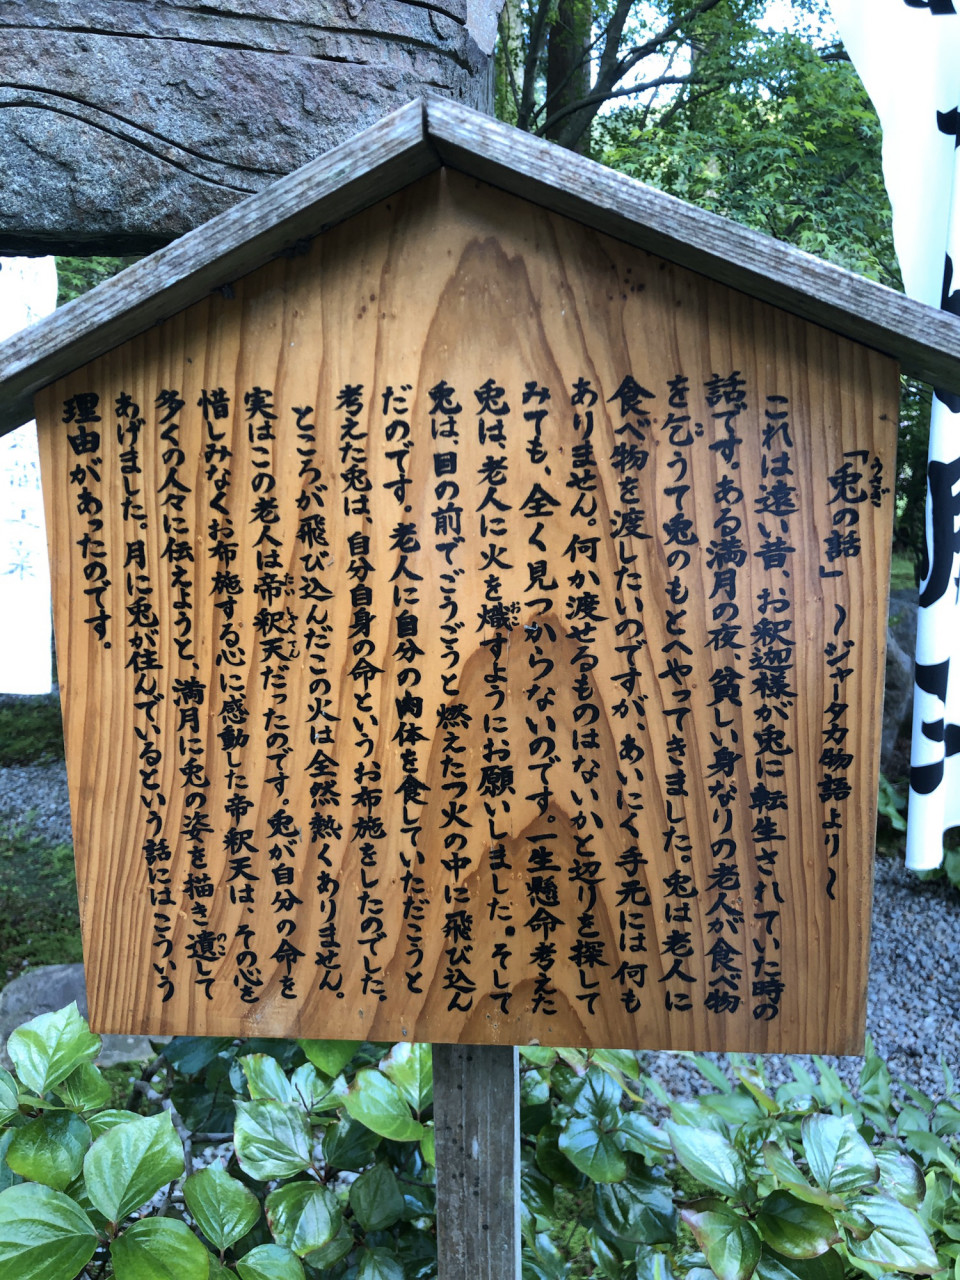 「兎の話」 〜ジャータカ物語より〜
うさぎ
これは遠い昔、お釈迦様が兎に転生されていた時の
話です。ある満月の夜、貧しい身なりの老人が食べ物
を乞うて兎のもとへやってきました。兎は老人に
こ
食べ物を渡したいのですが、あいにく手元には何も
ありません。何か渡せるものはないかと辺りを探して
みても、全く見つからないのです。一生懸命考えた
兎は、老人に火を熾すようにお願いしました。そして
おこ
兎は、目の前でごうごうと燃えたつ火の中に飛び込ん
だのです。老人に自分の肉体を食していただこうと
考えた兎は、自分自身の命というお布施をしたのでした。
ところが飛び込んだこの火は全然熱くありません。
実はこの老人は帝釈天だったのです。兎が自分の命を
たいしゃくてん
惜しみなくお布施する心に感動した帝釈天は、その心を
多くの人々に伝えようと、満月に兎の姿を描き遺して
のこ
あげました。月に兎が住んでいるという話にはこういう
理由があったのです。